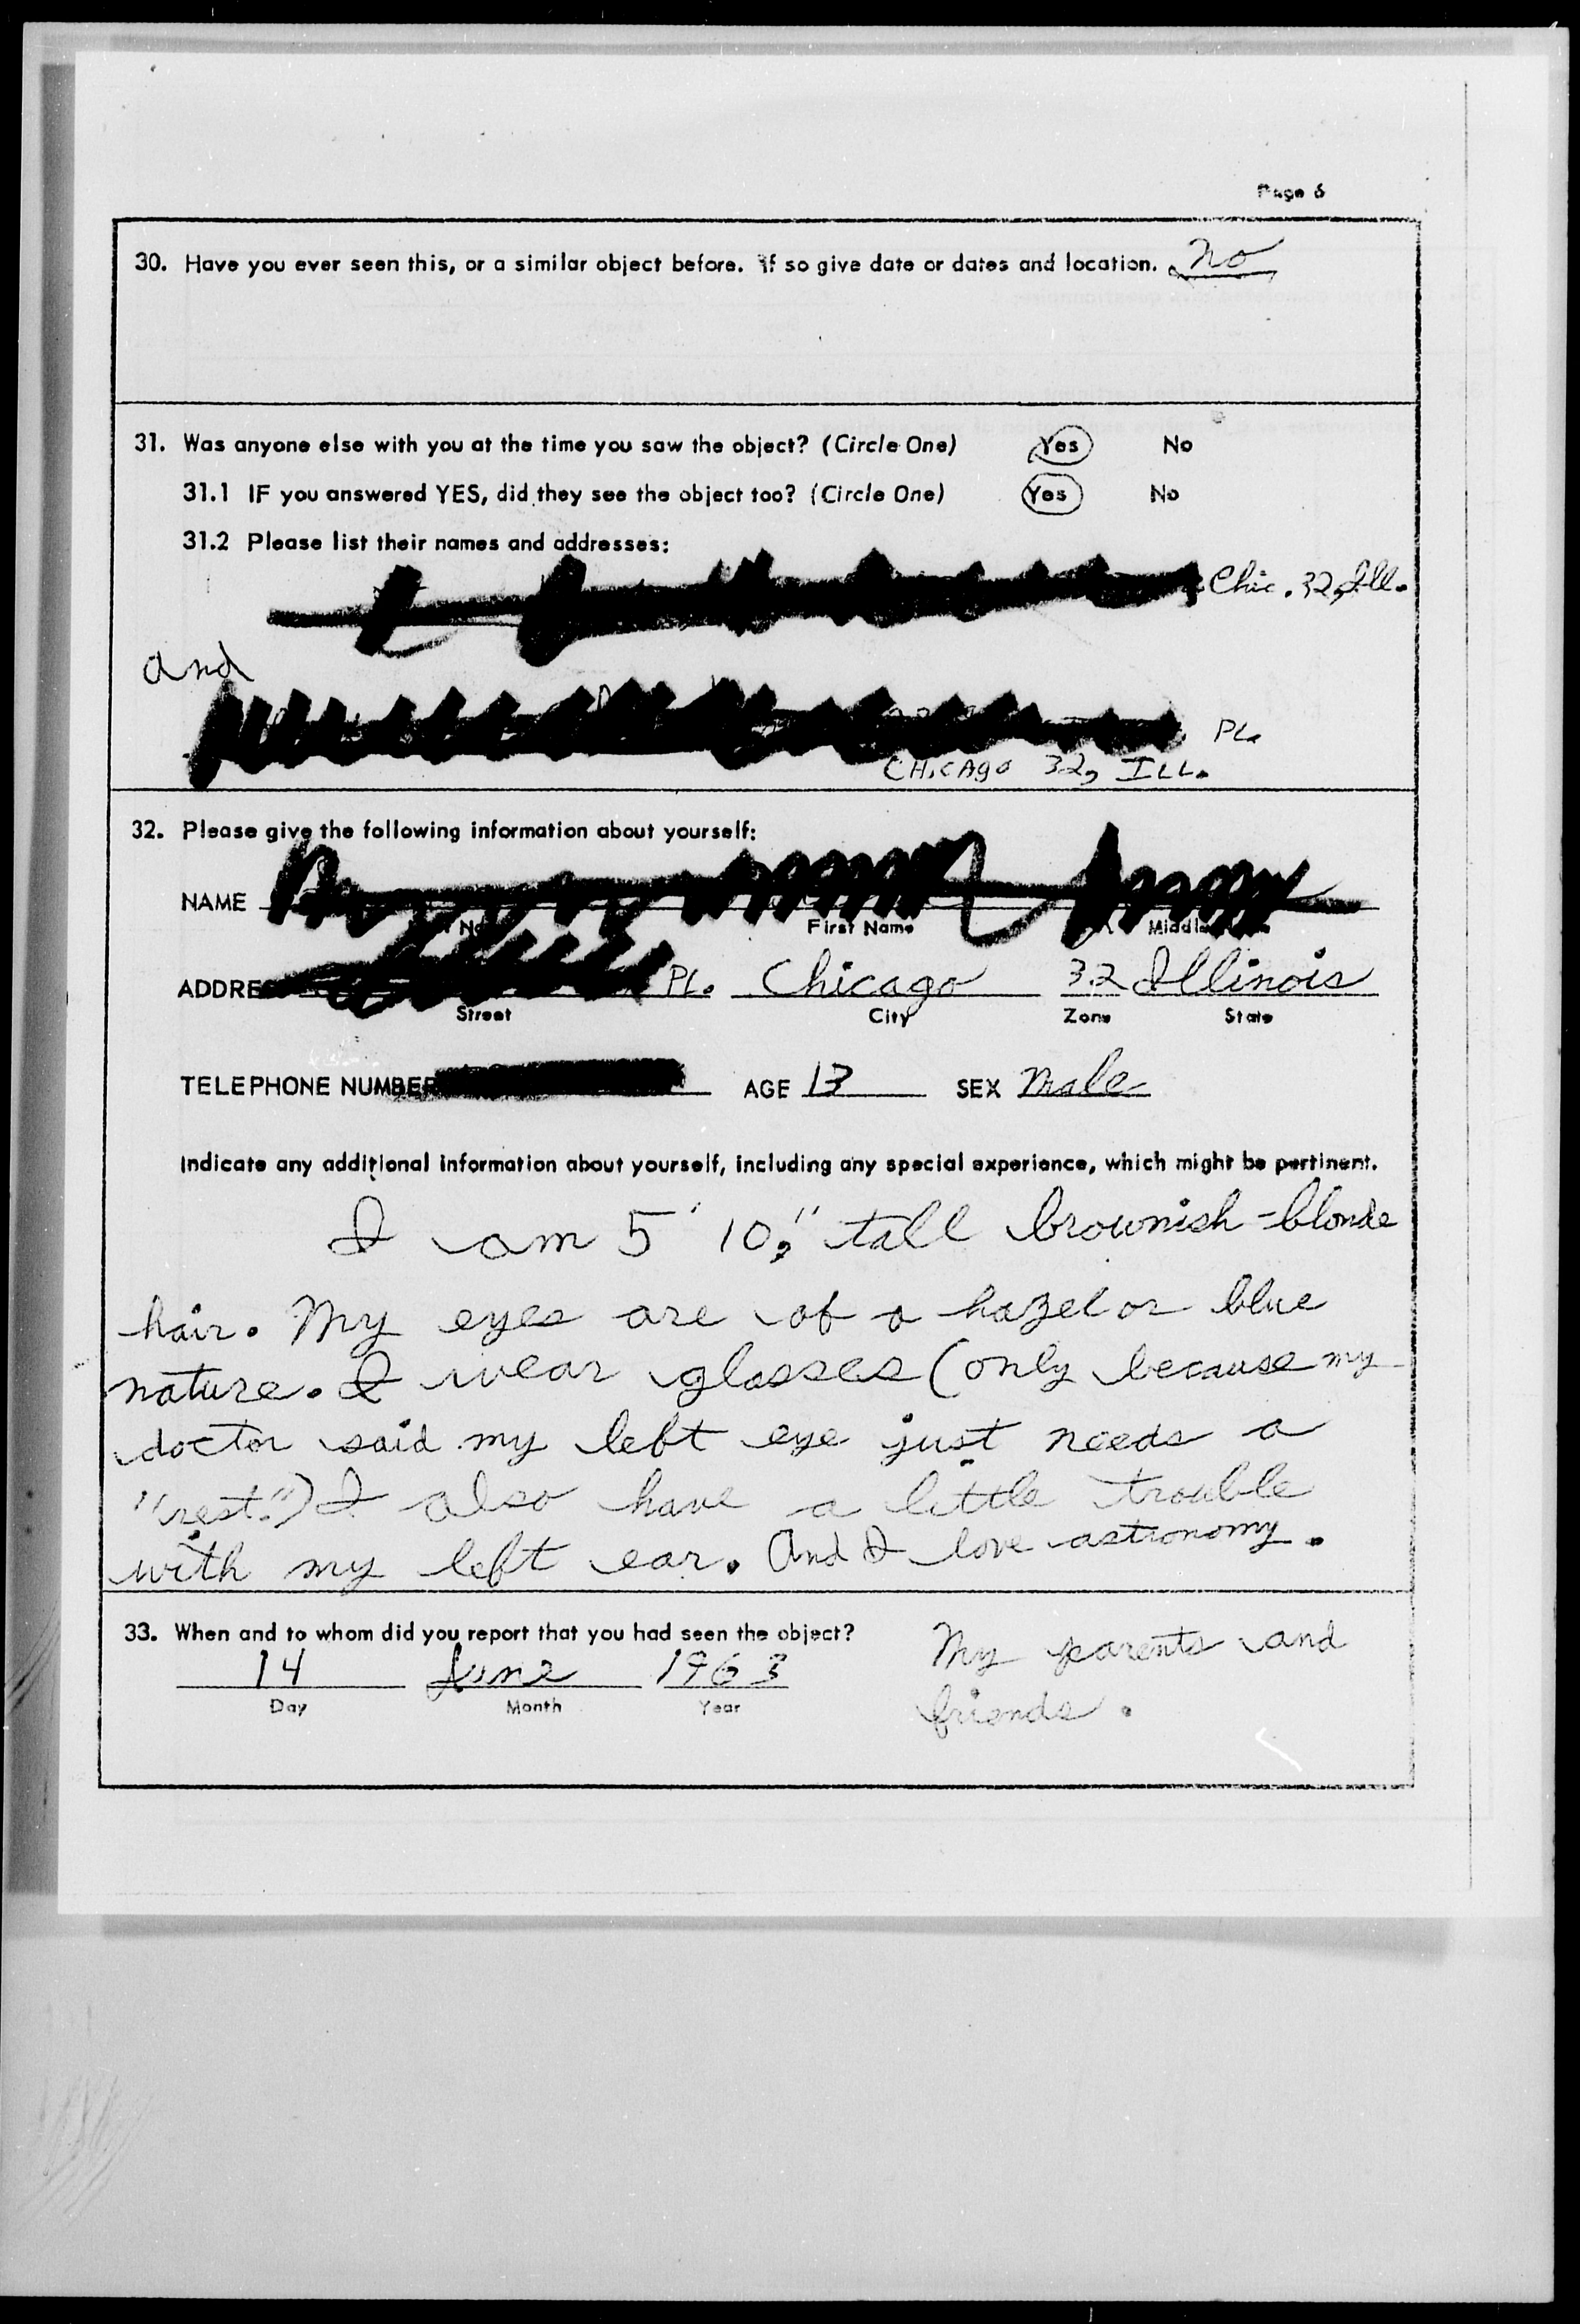 Page 6
30. Have you ever seen this, or a similar object before. If so give date or dates and location. No
31. Was anyone else with you at the time you saw the object? (Circle One) Yes No
31.1 IF you answered YES, did they see the object too? (Circle One) Yes No
31.2 Please list their names and addresses:
Chic. 32, Ill.
and
Pl.
CHICAgo 32, ILL.
32. Please give the following information about yourself:
NAME
First Name
ADDRE Pl. Chicago 32 Illinois
Street City Zone State
TELEPHONE NUMBER AGE 13 SEX Male
Indicate any additional information about yourself, including any special experience, which might be pertinent.
I am 5' 10," tall brownish-blonde
hair. My eyes are of a hazel or blue
nature. I wear glasses (only because my
doctor said my left eye just needs a
"rest.") I also have a little trouble
with my left ear. And I love astronomy.
33. When and to whom did you report that you had seen the object?
My parents and
14 June 1963
Day Month Year
friends.